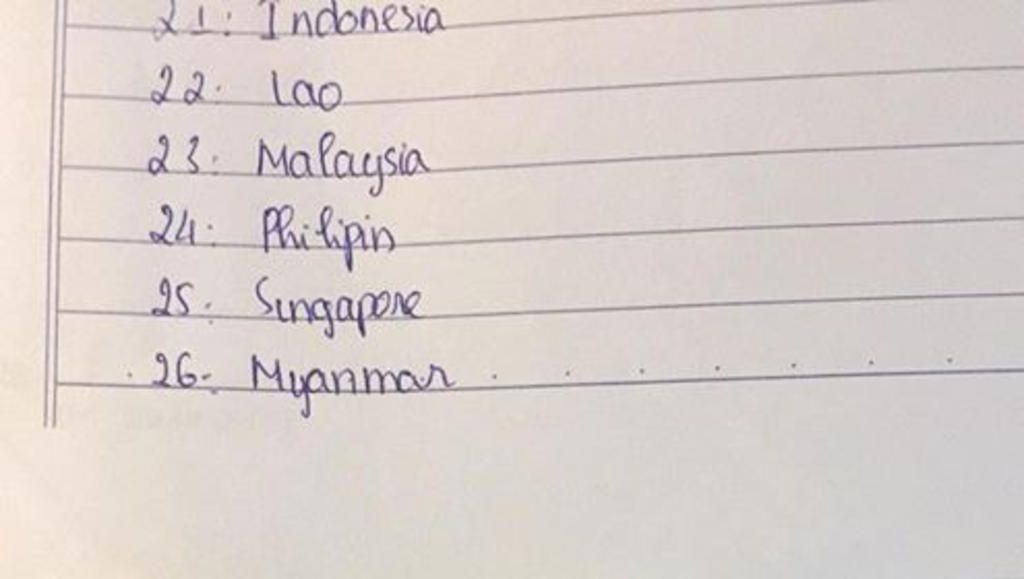 21: Indonesia
22: Lao
23: Malaysia
24: Philipin
25: Singapore
26: Myanmar